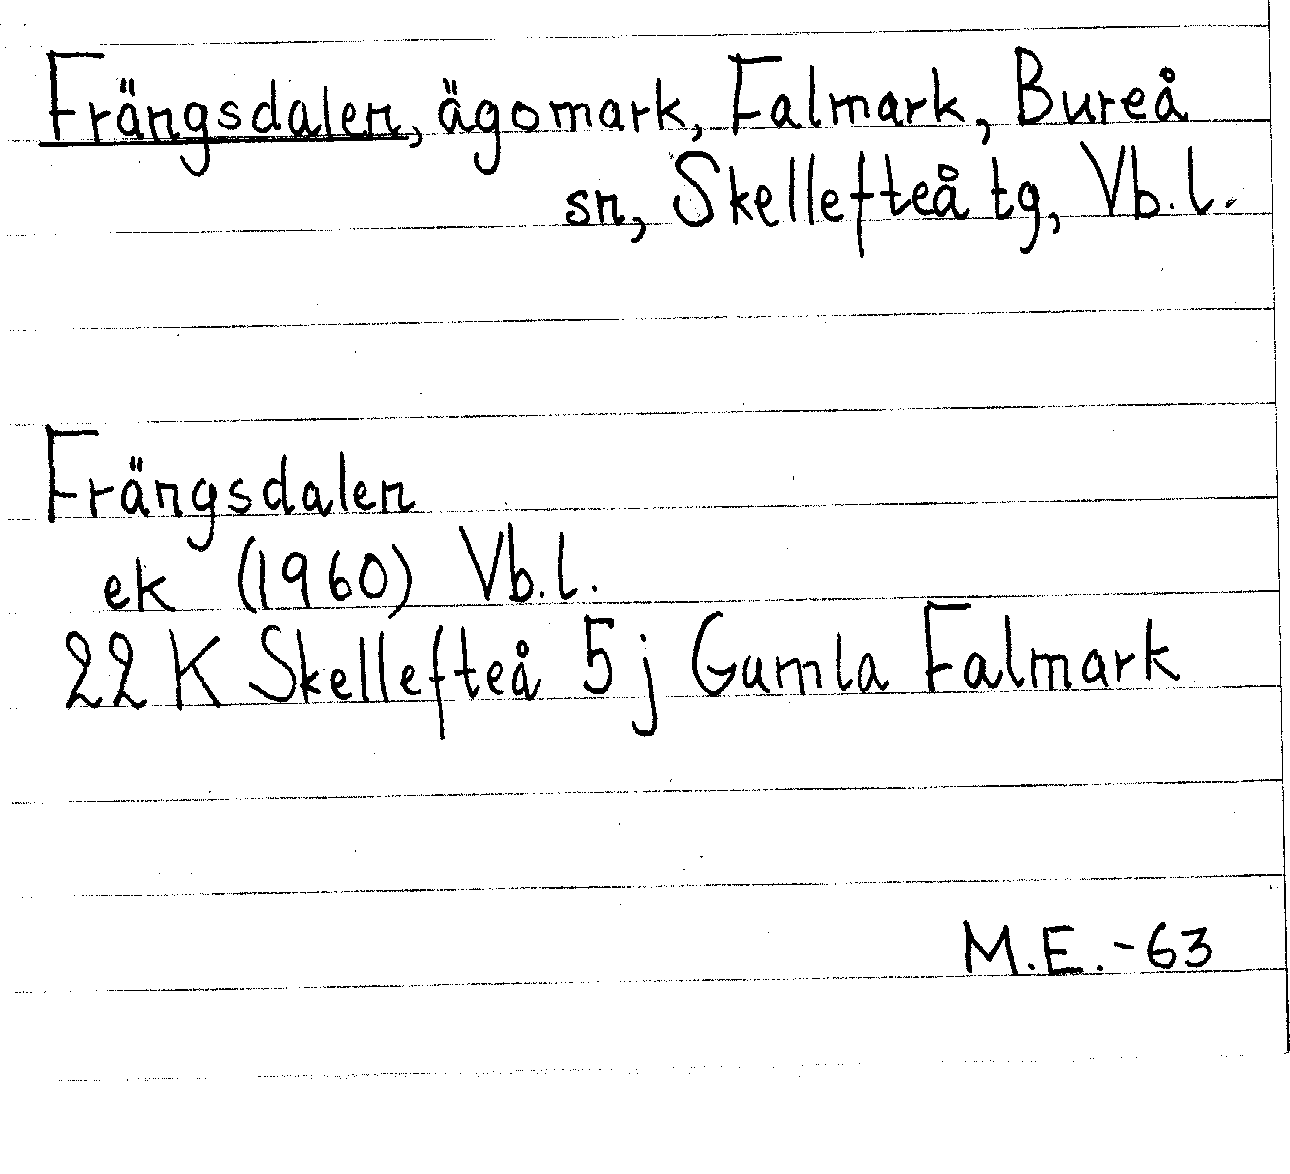 Frängsdalen, ägomark, Falmark, Bureå
sn, Skellefteå tg, Vb.l.
Frängsdalen
ek (1960) Vb.l.
22 K Skellefteå 5 j Gamla Falmark
M.E.-63